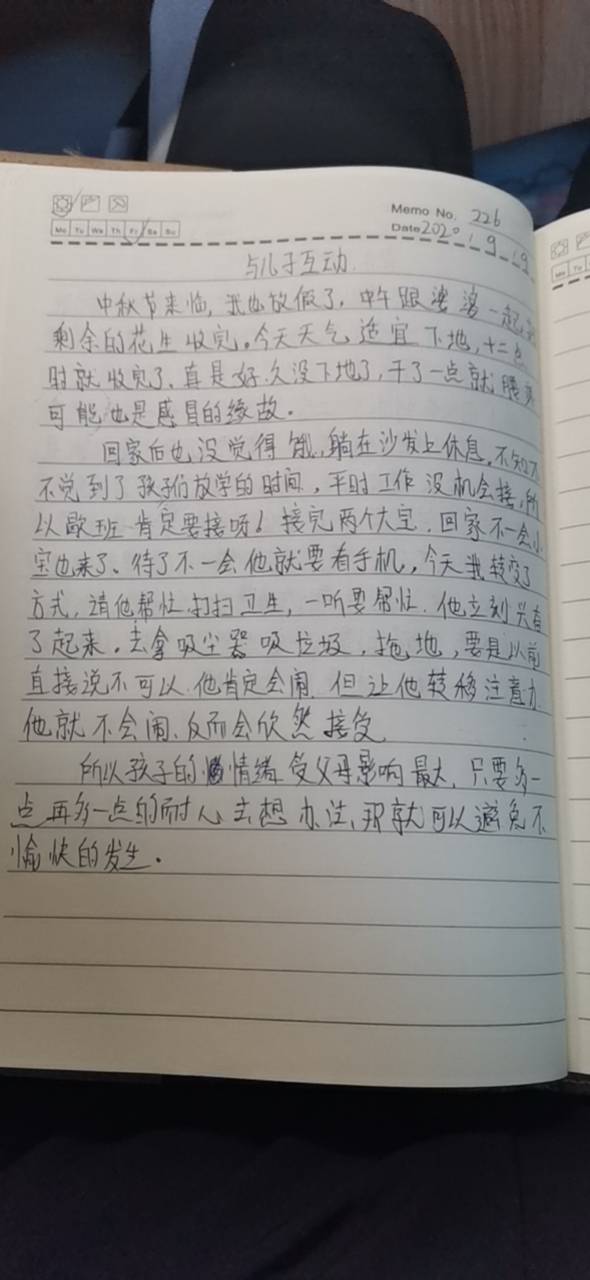 Memo No. 226
Mo Tu We Th Fr Sa Su
Date 2020.9.19
与儿子互动.
中秋节来临, 我也放假了, 中午跟婆婆一起
剩余的花生收完。今天天气适宜下地, 十二点
时就收完了、真是好久没下地了, 干了一点就腰
可能也是感冒的缘故。
回家后也没觉得饿, 躺在沙发上休息。不知不
不觉到了孩子们放学的时间, 平时工作没机会接, 所
以歇班肯定要接呀! 接完两个大宝, 回家不一会小
宝也来了、待了不一会他就要看手机, 今天我转变了
方式, 请他帮忙扫扫卫生, 一听要帮忙, 他立刻兴奋
了起来。去拿吸尘器吸垃圾, 拖地, 要是以前
直接说不可以他肯定会闹, 但让他转移注意力
他就不会闹、反而会欣然接受
所以孩子的情绪受父母影响最大, 只要多一
点再多一点的耐心去想办法, 那就可以避免不
愉快的发生。
Mo Tu